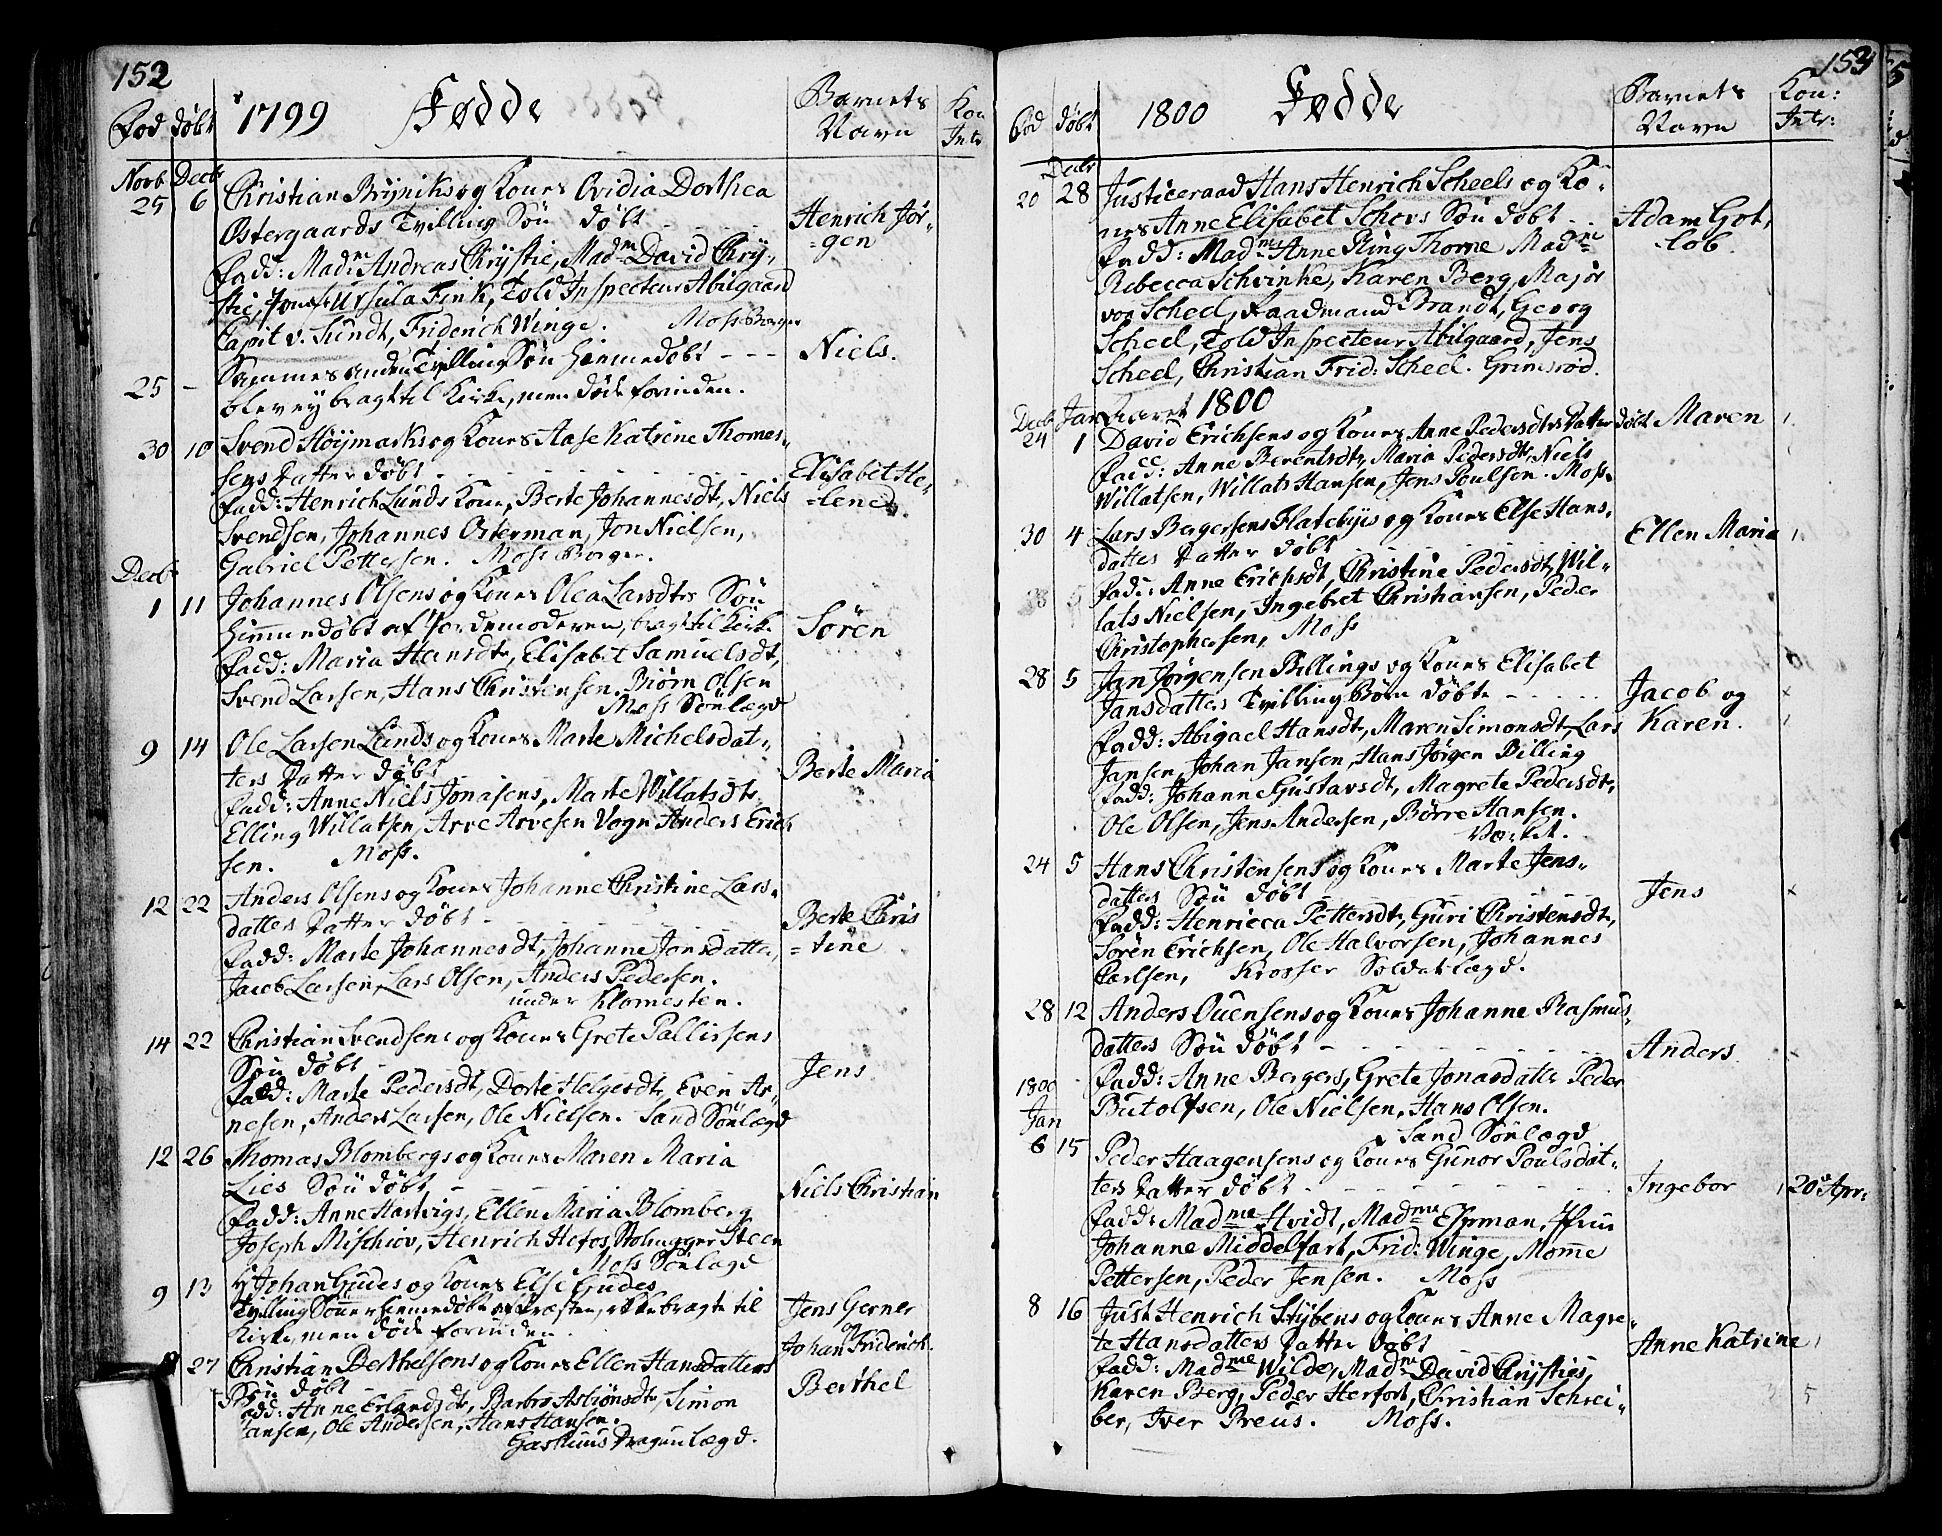 152
Fød døbt 1799 Fødde Barnets Navn Kon Intr
Novb Decb
25 6 Christian Brÿniks og Kones Ovidia Dorthea
Ostergaards Tvilling Søn døbt Henrich Jør-
=gen
Fadd: Madm Andreas Chrÿstie, Madm David Chrÿ-
stie, Jomf Ursula Fink, Told Inspecteur Abilgaard
Capit v. Sundt, Friderich Winge. Moss Borger
25 - Sammes anden Tvilling Søn hiemmedøbt - - - Niels.
blev ey bragt til Kirke, men døde forinden.
30 10 Svend Høÿmarks og Kones Aase Katrine Thomes-
sens Datter døbt Elisabet He-
=lene.
Fadd: Henrich Lunds Kone, Berte Johannesdt, Niels
Svendsen, Johannes Osterman, Jon Nielsen,
Gabriel Pettersen. Moss Borger.
Decb
1 11 Johannes Olsens og Kones Olea Larsdtrs Søn
hiemmedøbt af Jordemoderen, bragt til Kirke Sören
Fadd: Maria Hansdtr, Elisabet Samuelsdt,
Svend Larsen, Hans Christensen, Biørn Olsen
Moss Sönlægd
9 14 Ole Larsen Lunds og Kones Marte Michelsdat-
ters Datter døbt Berte Maria
Fadd: Anne Niels Jonasens, Marte Willatsdtr
Elling Willatsen, Arve Arvesen Vogn Anders Erich
sen. Moss.
12 22 Anders Olsens og Kones Johanne Christine Lars-
datters Datter døbt - Berte Chris
=tine
Fadd: Marte Johannesdt, Johanne Jonsdatter,
Jacob Larsen, Lars Olsen, Anders Pedersen.
under Klomesten.
14 22 Christian Svendsens og Kones Grete Pallissens
Søn døbt - Jens
Fad: Marte Pedersdt, Dorte Helgesdt, Even Ar-
nesen, Anders Larsen, Ole Nielsen. Sand Sönlægd
12 26 Thomas Blombergs og Kones Maren Maria
Lies Søn døbt Niels Christian
Fadd: Anne Hartvigs, Ellen Maria Blomberg
Joseph Mischiov, Henrich Hofos, Steen
Moss Sönlægd
9 13 Johan Gudes og Kones Else Gudes
Tvilling Sönner hiemmedøbt af Præsten, ikke bragte til Jens Gerner
Kirke, men døde forinden. og
Johan Friderich.
27 Christian Berthelsens og Kones Ellen Hansdatters
Søn døbt Berthel
Fadd: Anne Erlandsdt, Barbro Asbiönsdtr, Simon
Jansen, Ole Andersen, Hans Hansen.
Gashuus Dragunlægd.
153
Fød døbt 1800 Fødde Barnets Navn Kon: Intr:
Decb
20 28 Justiceraad Hans Henrich Scheels og Ko-
nes Anne Elisabet Schovs Søn døbt - - Adam Got,
-lob.
Fadd: Madme Anne Ring Thorne Madme
Rebecca Schvinke, Karen Berg, Major
von Scheel, Raadmand Brandt, Georg
Scheel, Told Inspecteur Abilgaard, Jens
Scheel, Christian Frid: Scheel. Grimsrød.
Decb Jan Aaret 1800
24 1 David Erichsens og Kones Anne Pedersdtrs Datter døbt Maren
Fadd: Anne Berentsdtr, Maria Pedersdtr, Niels
Willatsen, Willats Hansen, Jens Poulsen. Moss
30 4 Lars Bergersens Flatebÿes og Kones Else Hans-
datters Datter døbt Ellen Maria
Fadd: Anne Erichsdt, Christine Pedersdt, Wil-
lats Nielsen, Ingebret Christiansen, Peder
Christophersen, Moss
28 5 Jan Jørgensen Billings og Kones Elisabet
Jansdatters Tvilling Børn døbte - - - - - Jacob og
Fadd: Abigael Hansdt, Maren Simonsdt, Lars Karen.
Jansen, Johan Jansen, Hans Jørgen Billing
Fadd: Johanne Gustavsdt, Magrete Pedersdt,
Ole Olsen, Jens Andersen, Börre Hansen.
24 5 Hans Christensens og Kones Marte Jens-
datters Søn døbt Jens
Fadd: Henricca Pettersdt, Guri Christensdt,
Sören Erichsen, Ole Halvorsen, Johannes
Carlsen, Krosser Soldatlægd.
28 12 Anders Ouensens og Kones Johanne Rasmus-
datters Søn døbt Anders
Fadd: Anne Bergers, Grete Jonasdatter Peder
Butolfsen, Ole Nielsen, Hans Olsen.
1800
Jan Sand Sönlægd
6 15 Peder Haagensens og Kones Gunor Poulsdat-
ters Datter døbt Ingebor 20 Apr:
Fadd: Madme Hvidt, Madme Elsman, Jfru
Johanne Middelfart, Frid: Winge, Momme
Pettersen, Peder Jensen. Moss
8 16 Just Henrich Stÿbens og Kones Anne Magre-
te Hansdatters Datter døbt Anne Katrine
Fadd: Madme Wilde, Madme David Chrÿsties,
Karen Berg, Peder Herfort, Christian Schrei-
ber, Iver Preus. Moss.